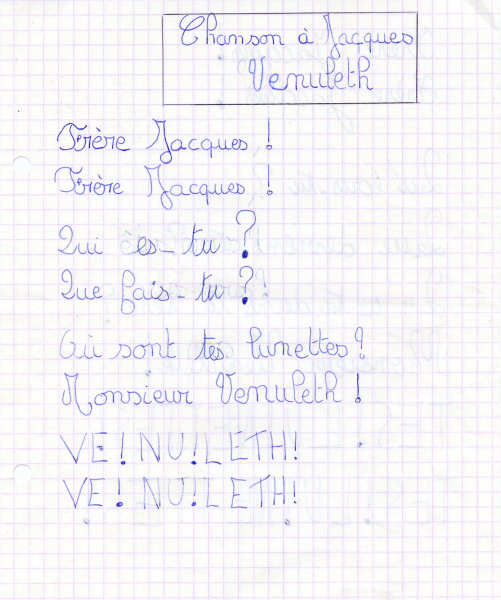 Chanson à Jacques
Venuleth
Frère Jacques !
Frère Jacques !
Qui es-tu ?
Que fais-tu ?
Où sont tes lunettes ?
Monsieur Venuleth !
VE ! NU ! LETH !
VE ! NU ! LETH !